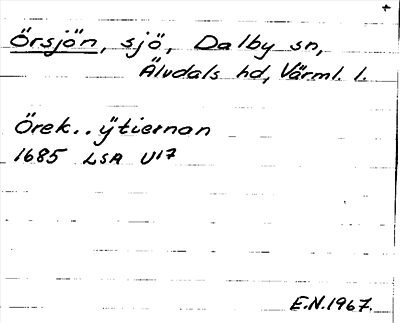 Örsjön, sjö, Dalby sn,
Älvdals hd, Värml. l.
Örek.. ÿtiernan
1685 LSA U17
E.N.1967.